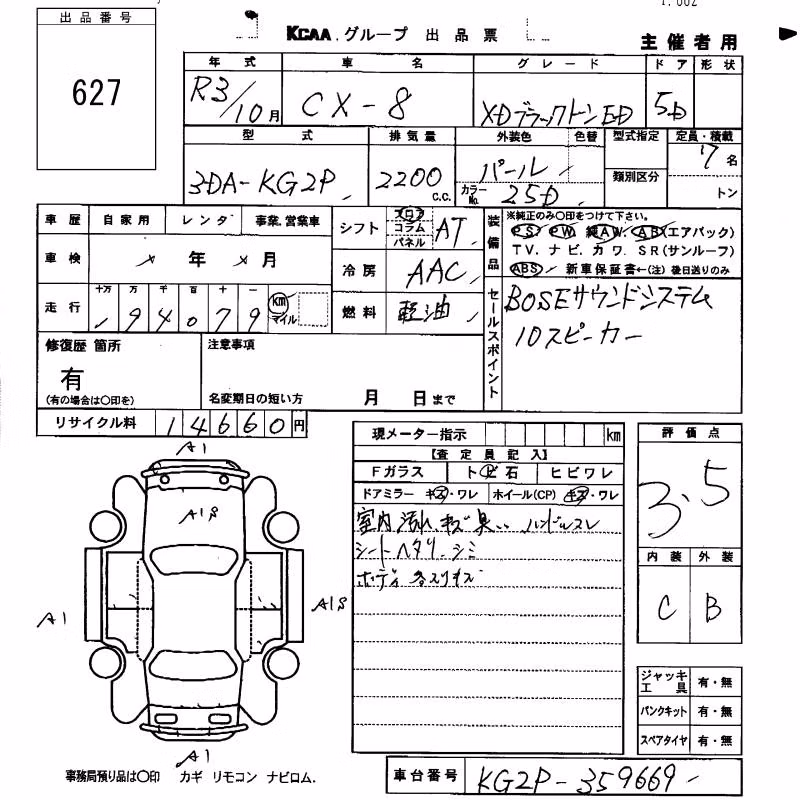 出品番号
627
KCAA グループ 出品票
主催者用
年式 車名 グレード ドア 形状
R3/10月 CX-8 XDブラックトーンED 5D
型式 排気量 外装色 色替 型式指定 定員・積載
3DA-KG2P 2200 C.C. パール 7名
カラーNo. 25D 類別区分 トン
車歴 自家用 レンタ 事業.営業車
シフト フロア コラム パネル AT
装備品 ※純正のみ〇印をつけて下さい。
PS PW 純AW. AB(エアバック)
TV. ナビ. カワ. SR(サンルーフ)
ABS 新車保証書←(注) 後日送りのみ
車検 年 月
冷房 AAC
走行 十万 万 千 百 十 一
94079 km マイル
燃料 軽油
セールスポイント
BOSEサウンドシステム
10スピーカー
修復歴 箇所 注意事項
有
(有の場合は〇印を) 名変期日の短い方 月 日まで
リサイクル料 14660円
現メーター指示 km
評価点
【査定員記入】
Fガラス トビ石 ヒビワレ
ドアミラー キズ・ワレ ホイール(CP) キズ・ワレ
3.5
室内 汚れ キズ 臭い ハンドルスレ
シートヘタリ. シミ
ボディ 各スリキズ
内装 外装
C B
A1
A1S
A1
A1S
A1
ジャッキ工具 有・無
パンクキット 有・無
スペアタイヤ 有・無
事務局預り品は〇印 カギ リモコン ナビロム.
車台番号 KG2P-359669